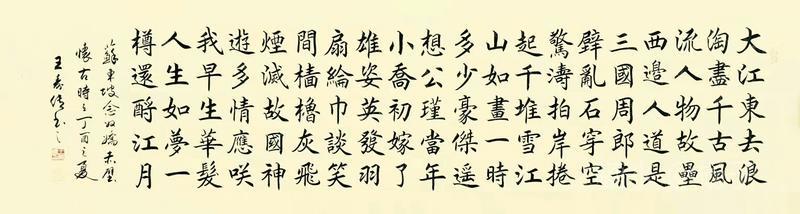 大江東去浪
淘盡千古風
流人物故壘
西邊人道是
三國周郎赤
壁亂石穿空
驚濤拍岸捲
起千堆雪江
山如畫一時
多少豪傑遥
想公瑾當年
小喬初嫁了
雄姿英發羽
扇綸巾談笑
間檣櫓灰飛
煙滅故國神
遊多情應咲
我早生華髮
人生如夢一
樽還酹江月
蘇東坡念奴嬌赤壁
懷古時丁酉之夏
王